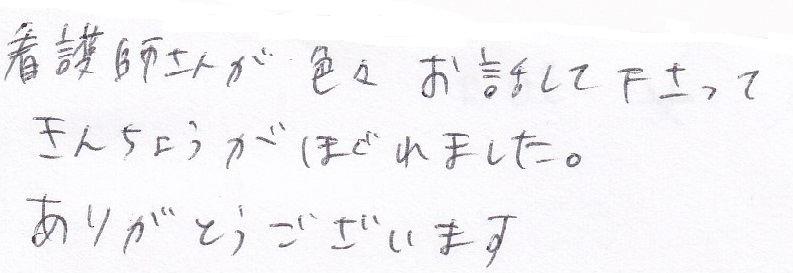 看護師さんが 色々 お話して下さって
きんちょうがほぐれました。
ありがとうございます